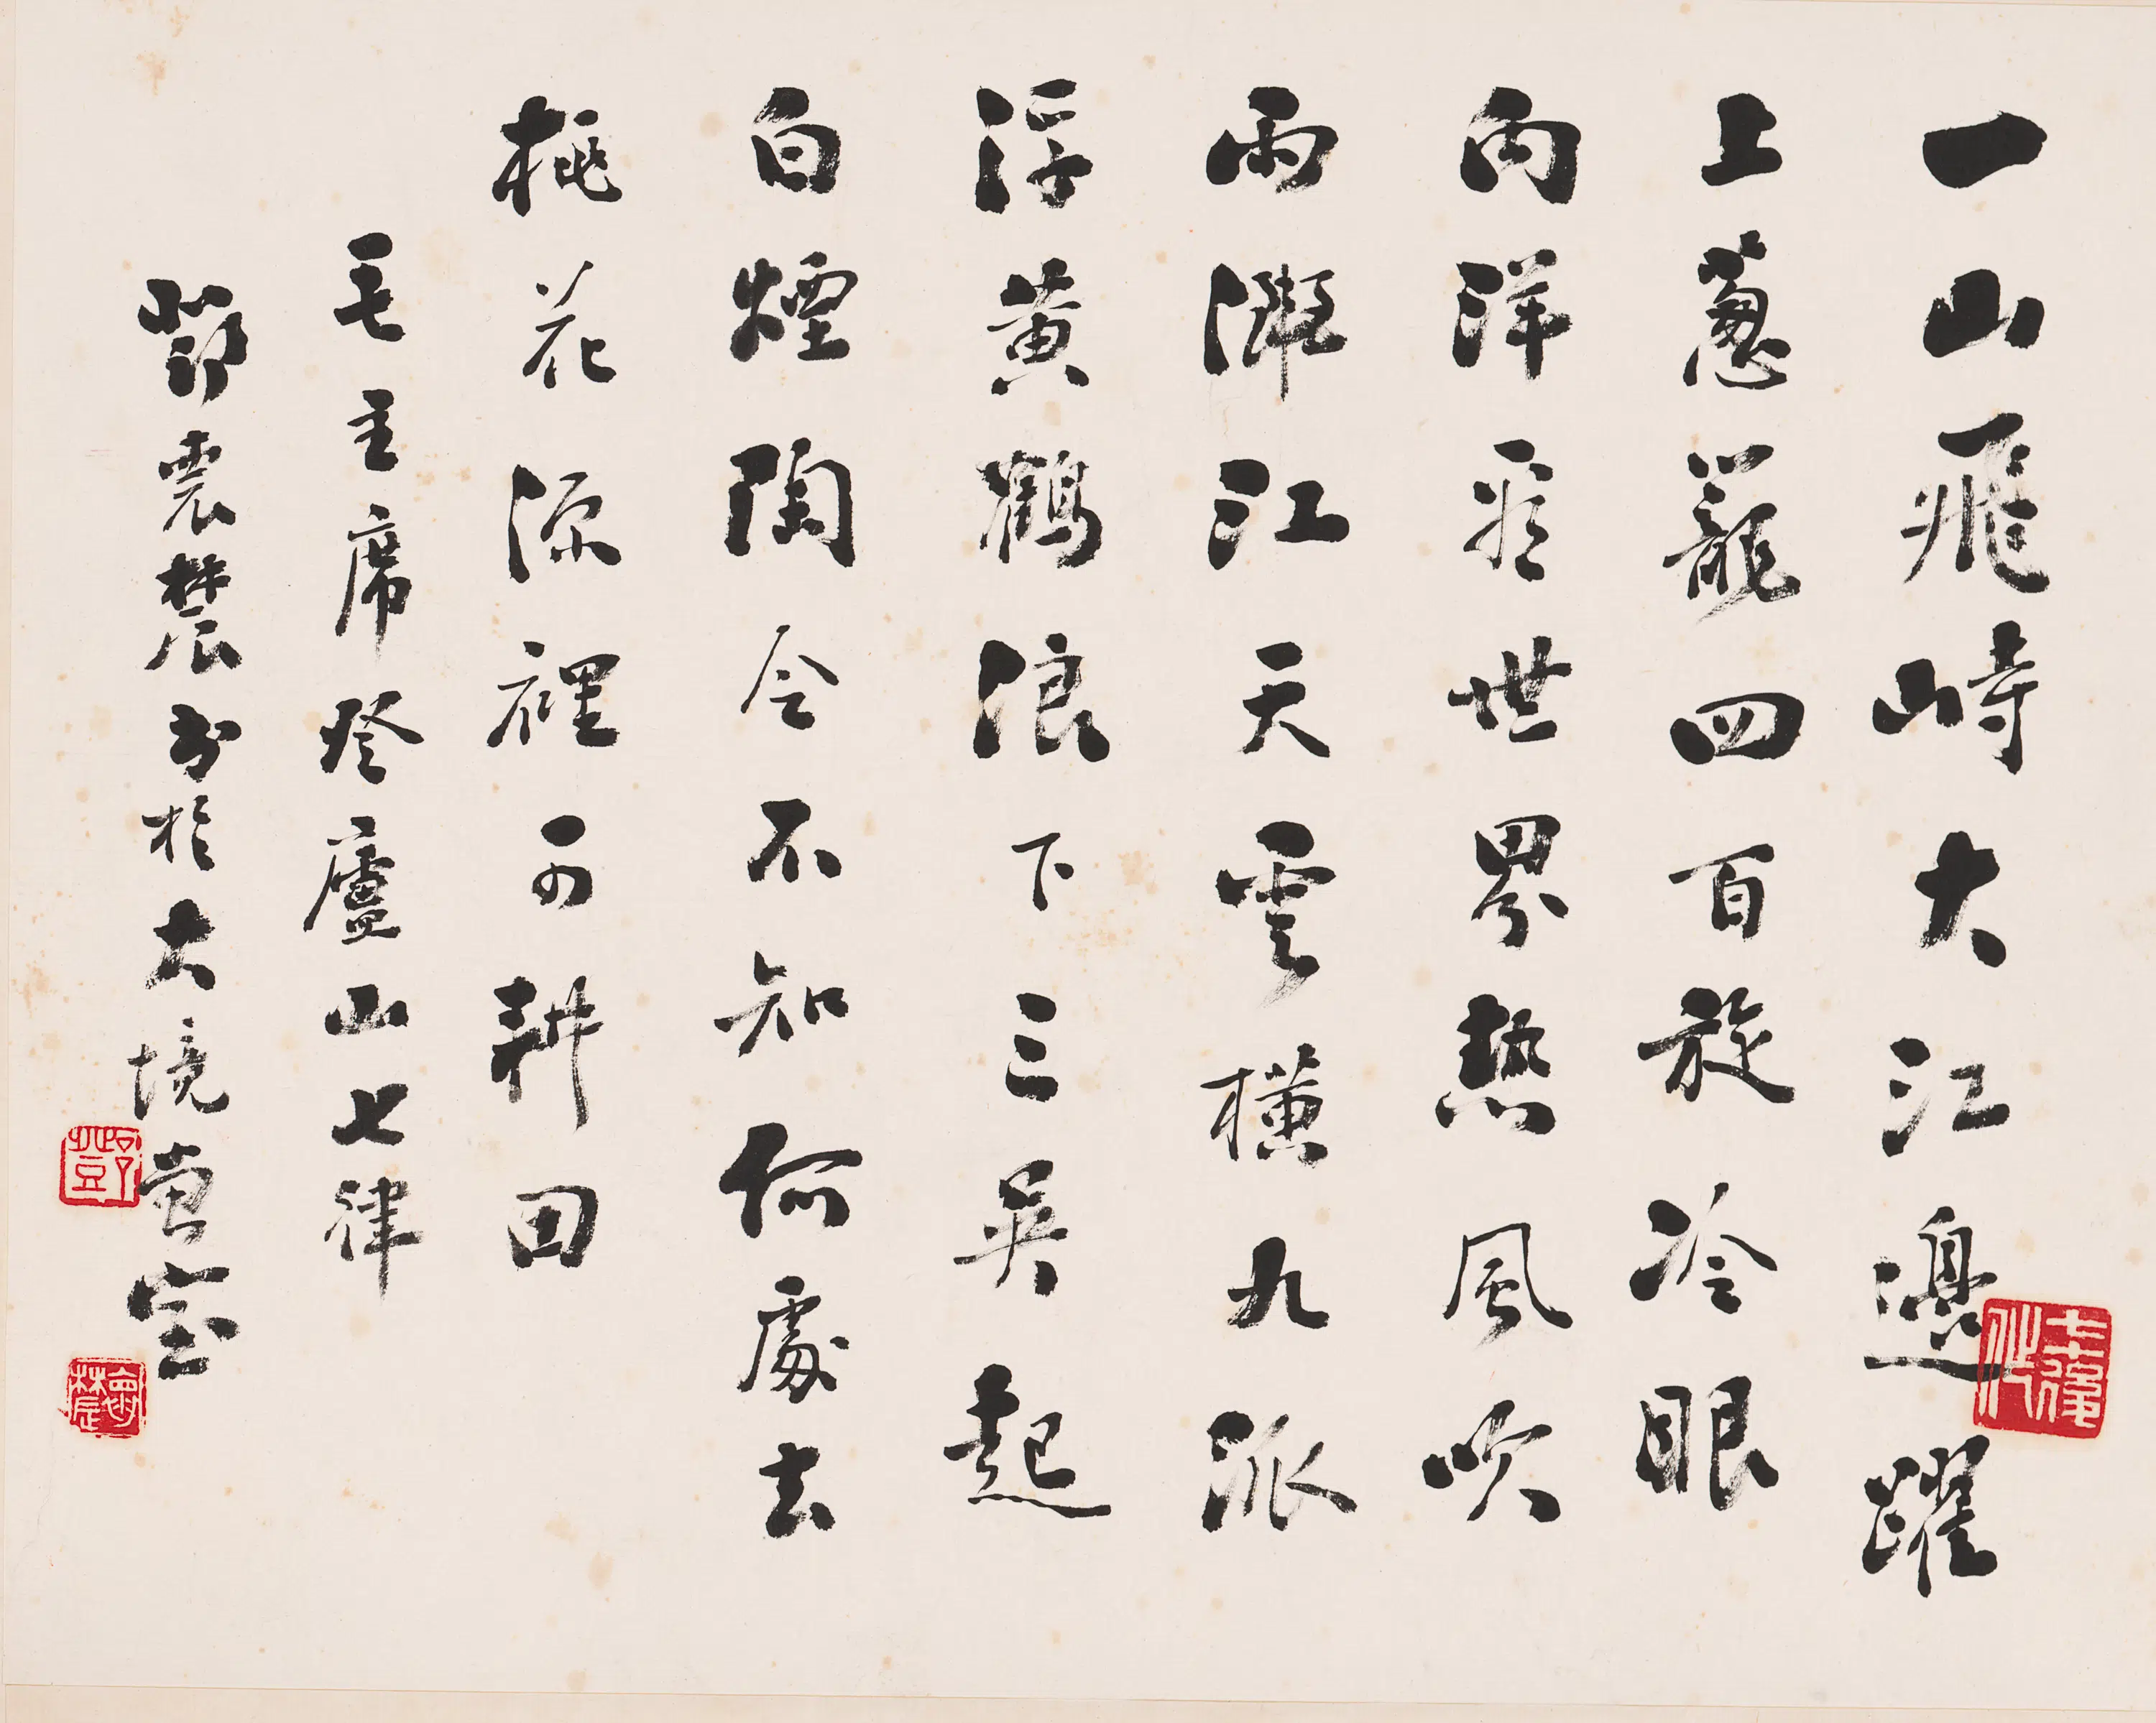 一山飛峙大江邊躍
上葱蘢四百旋冷眼
向洋看世界熱風吹
雨濺江天雲橫九派
浮黃鶴浪下三吳起
白煙陶令不知何處去
桃花源裡可耕田
毛主席登廬山七律
鄧褱辳書於大境畫室
鄧